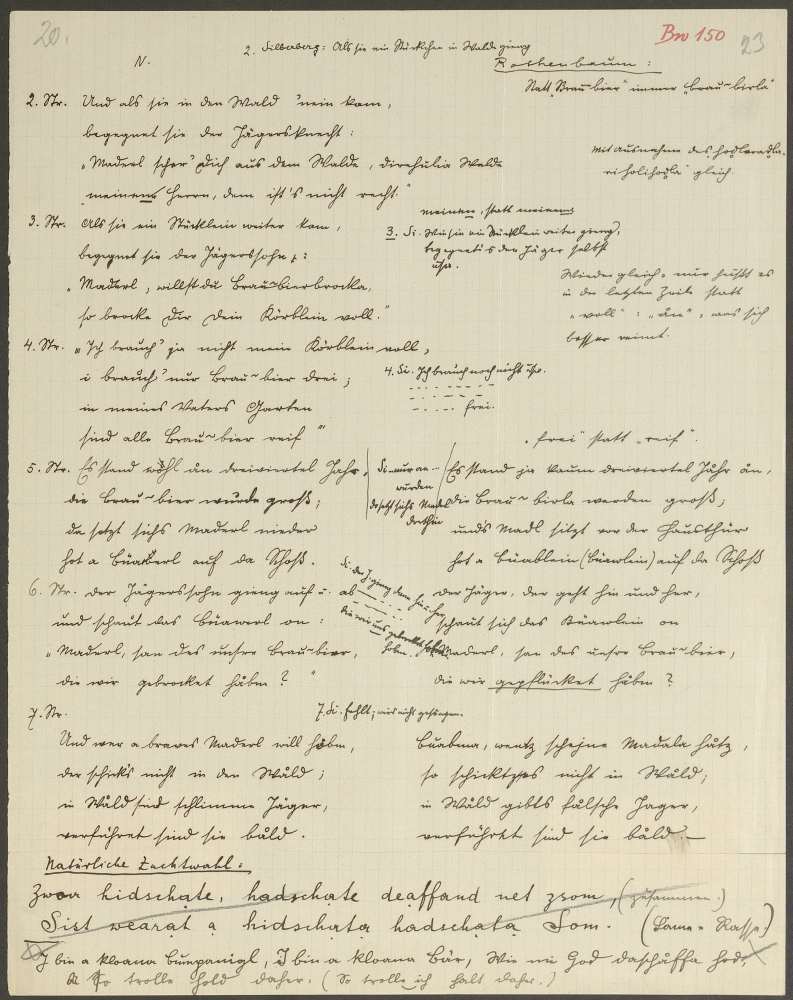 20.
Bw 150
23
N.
2. Silberberg: Als sie ein Stückchen in Walde gieng
Rothenbaum:
Statt „Braunbier" immer „braun-birla"
2. Str. Und als sie in den Wald 'nein kam,
begegnet sie der Jägersknecht:
„Maderl scher' Dich aus dem Walde, Walde
meinens Herrn, dem ist's nicht recht."
mit Ausnahme des
gleich.
meinen, statt meinens
3. Str. Als sie ein Stücklein weiter kam,
begegnet sie der Jägerssohn:
„Maderl, willst du Braunbierbrocka,
so brocke Dir Dein Körblein voll."
3. Si. Wie sie ein Stücklein weiter gieng,
begegnet's den Jäger selbst
usw.
Wieder gleich, nur heißt es
in der letzten Zeile statt
„voll": „ån", was sich
besser reimt.
4. Str. „Ich brauch' ja nicht mein Körblein voll,
i brauch' nur Braunbier drei;
in meines Vaters Garten
sind alle Braunbier reif"
4. Si. Ich brauch noch nicht usw.
frei.
„frei" statt „reif".
5. Str. Es stand wohl an dreiviertel Jahr,
die Braunbier wurde groß;
da setzt sichs Maderl nieder
hot a Büaberl auf da Schoß.
Si. nur an
wurden
do setzt sichs Madl
dorthin
Es stand ja kaum dreiviertel Jåhr ån,
die Braunbirla werden groß,
unds Madl sitzt vor der Hausthür
hot a Büablein (Büawlein) auf da Schoß
6. Str. Der Jägerssohn gieng auf u. ab
und schaut des Büawerl on:
„Maderl, san des unsre Braunbier,
die wir gebrocket håbm?"
Si. der J. gieng dann hin u. her
die wir uns gebrocket habn
hobm
Der Jäger, der geht hin und her,
schaut sich des Büawlein on
Maderl, san des unsre Braunbier,
die wir gepflücket håbm?
7. Str.
7. Si. fehlt; wird nicht gesungen.
Und wer a braves Maderl will håbm,
der schick's nicht in den Wåld;
in Wåld sind schlimme Jäger,
verführet sind sie båld.
Buabma, wentz schejne Madala håtz,
so schickt's nicht in Wåld;
in Wåld gibts fålsche Jager,
verführt sind sie båld
Natürliche Zuchtwahl:
Zwoa hidschate, hadschate deaffand net zsom, (zusammen.)
Sist wearat a hidschata hadschata Som. (Same = Rasse.)
I bin a kloana Bumpanigl, I bin a kloana Bär, Wie mi God daschåffa hod,
So trolle hold daher. (So trolle ich halt daher.)